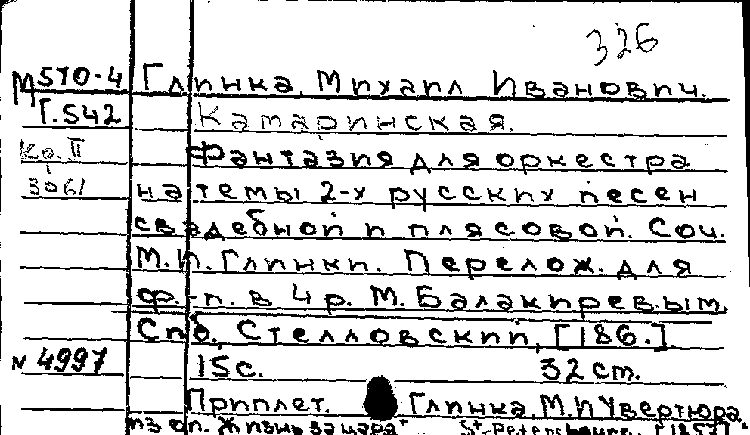 326
М 570-4 Глинка, Михаил Иванович.
Г.542 Камаринская.
Кр. II Фантазия для оркестра
3061 на темы 2-х русских песен
свадебной и плясовой. Соч.
М.И.Глинки. Перелож. для
ф.-п. в 4 р. М. Балакиревым,
Спб., Стелловский, [186.]
N 4997 15с. 32 cm.
Приплет. Глинка, М.И Увертюра
из оп. Жизнь за царя"